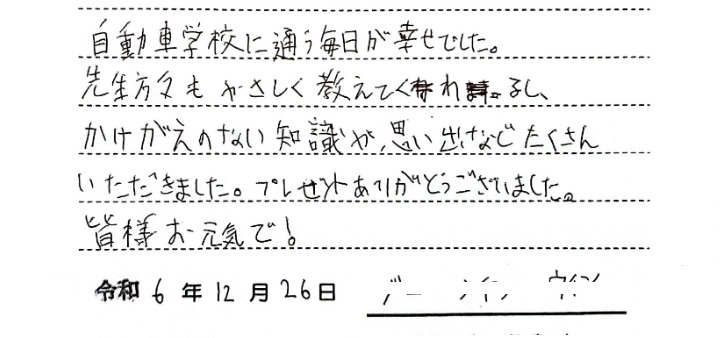 自動車学校に通う毎日が幸せでした。
先生方々もやさしく教えてくれるし、
かけがえのない知識が、思い出などたくさん
いただきました。プレゼントありがとうございました。
皆様お元気で!
令和 6 年 12 月 26 日